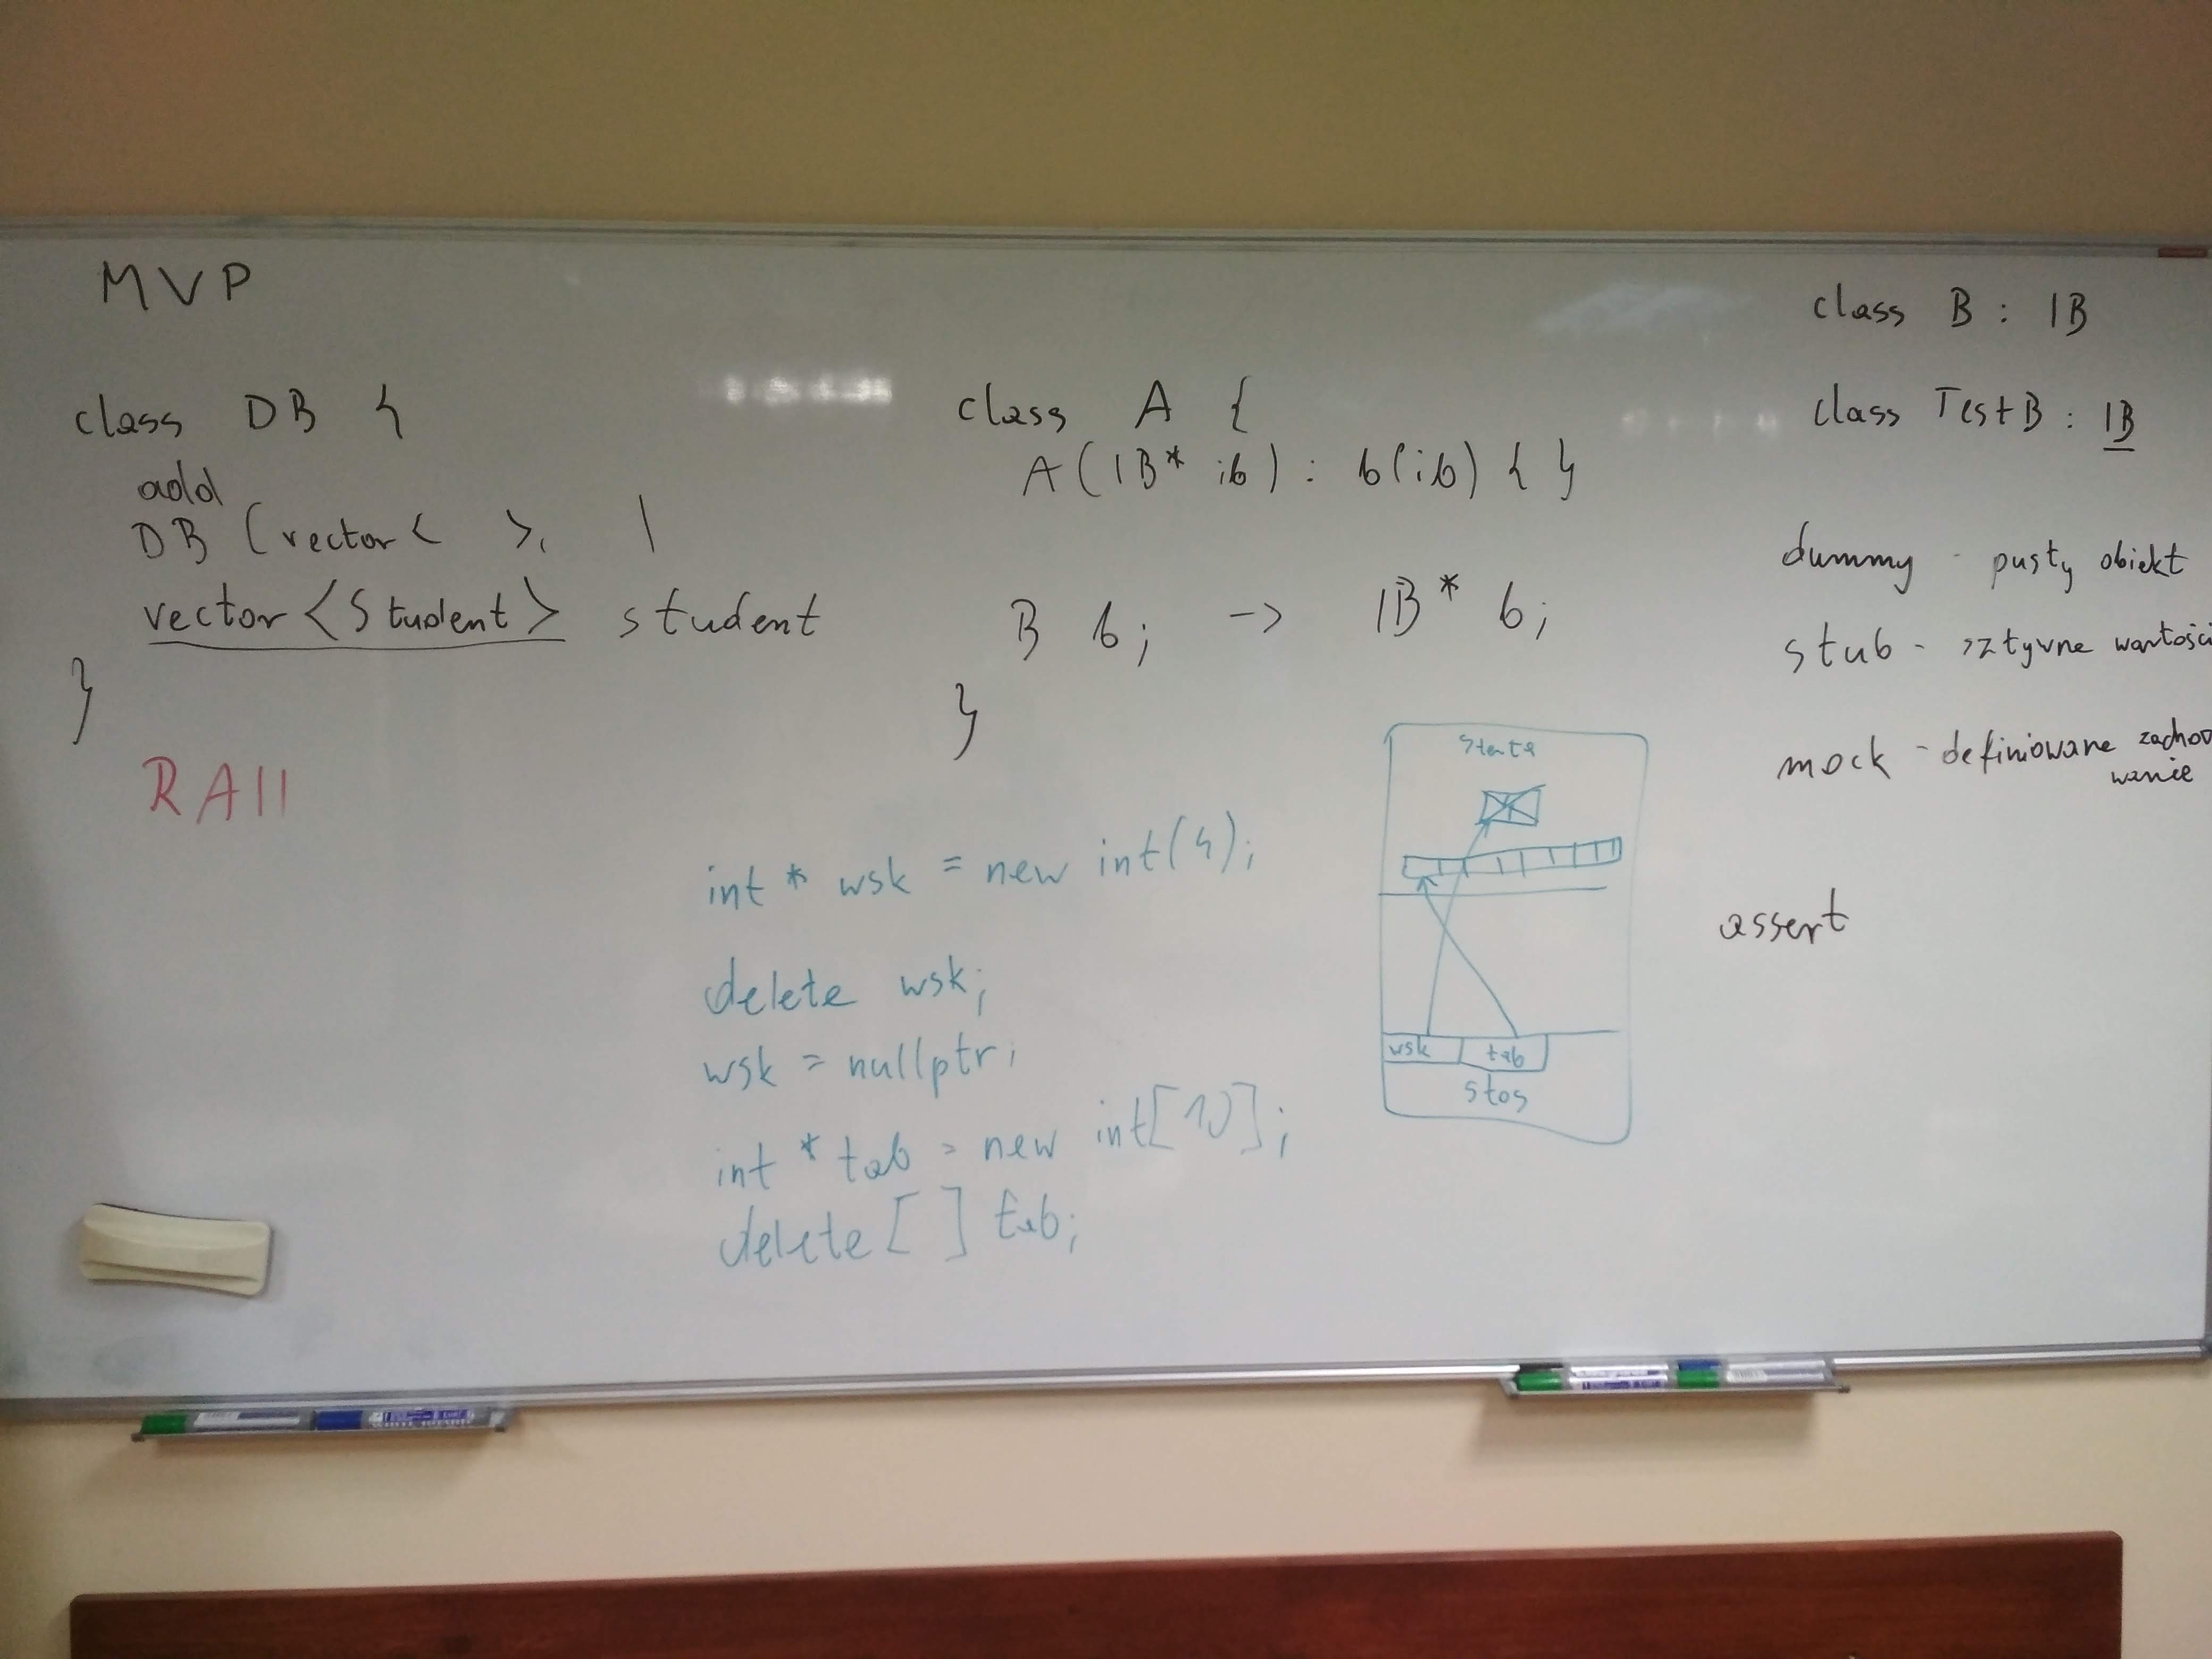 MVP
class DB {
add
DB (vector< >,
vector <Student> student
}
RAII
class A {
A(IB* ib) : b(ib) { }
B b; -> IB* b;
}
int * wsk = new int(4);
delete wsk;
wsk = nullptr;
int * tab = new int[10];
delete [ ] tab;
sterta
wsk tab
stos
class B : IB
class TestB : IB
dummy - pusty obiekt
stub - sztywne wartości
mock - definiowane zacho
wanie
assert